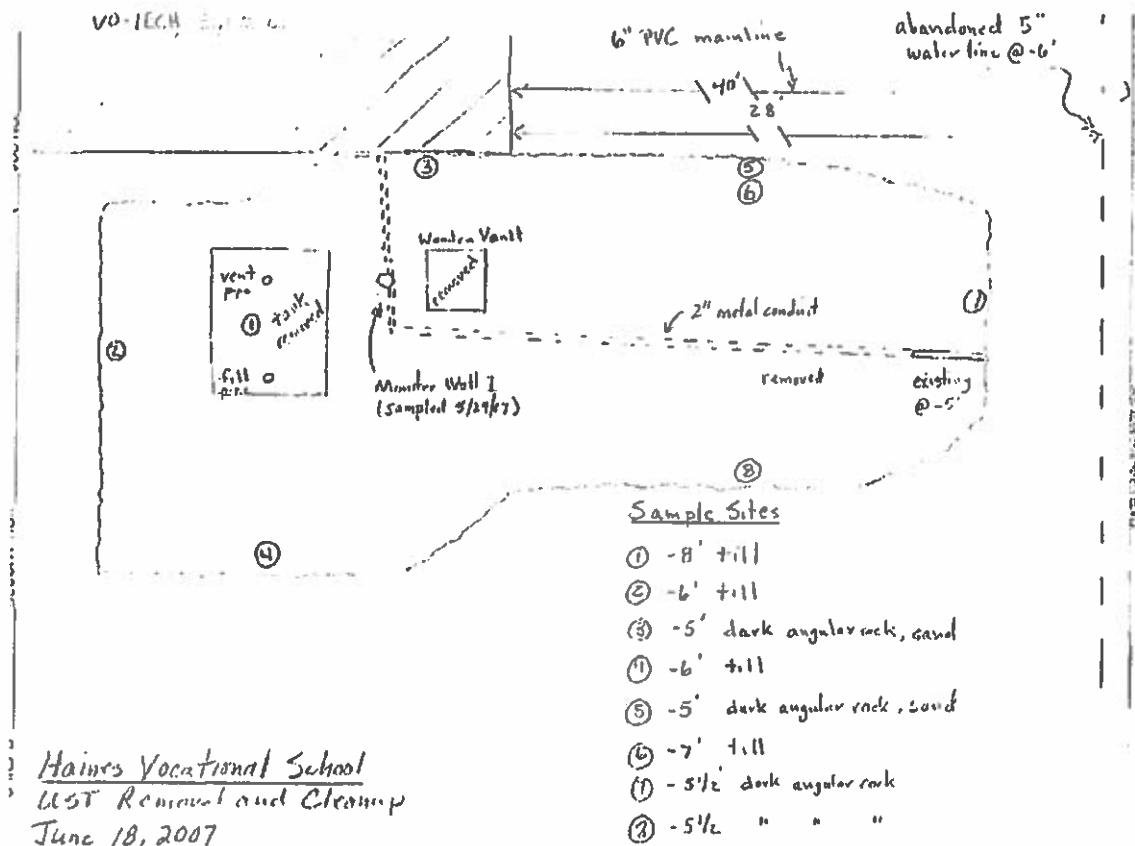 VO-TECH
6" PVC mainline
abandoned 5"
water line @ -6'
40'
28'
③
⑤
⑥
Wooden Vault
removed
vent
pipe
①
tank
removed
fill
pipe
②
2" metal conduit
⑦
removed
existing
@ -5'
Monitor Well I
(sampled 5/29/07)
⑧
④
Sample Sites
① -8' till
② -6' till
③ -5' dark angular rock, sand
④ -6' till
⑤ -5' dark angular rock, sand
⑥ -7' till
⑦ -5 1/2' dark angular rock
⑧ -5 1/2 " " "
Haines Vocational School
UST Removal and Cleanup
June 18, 2007